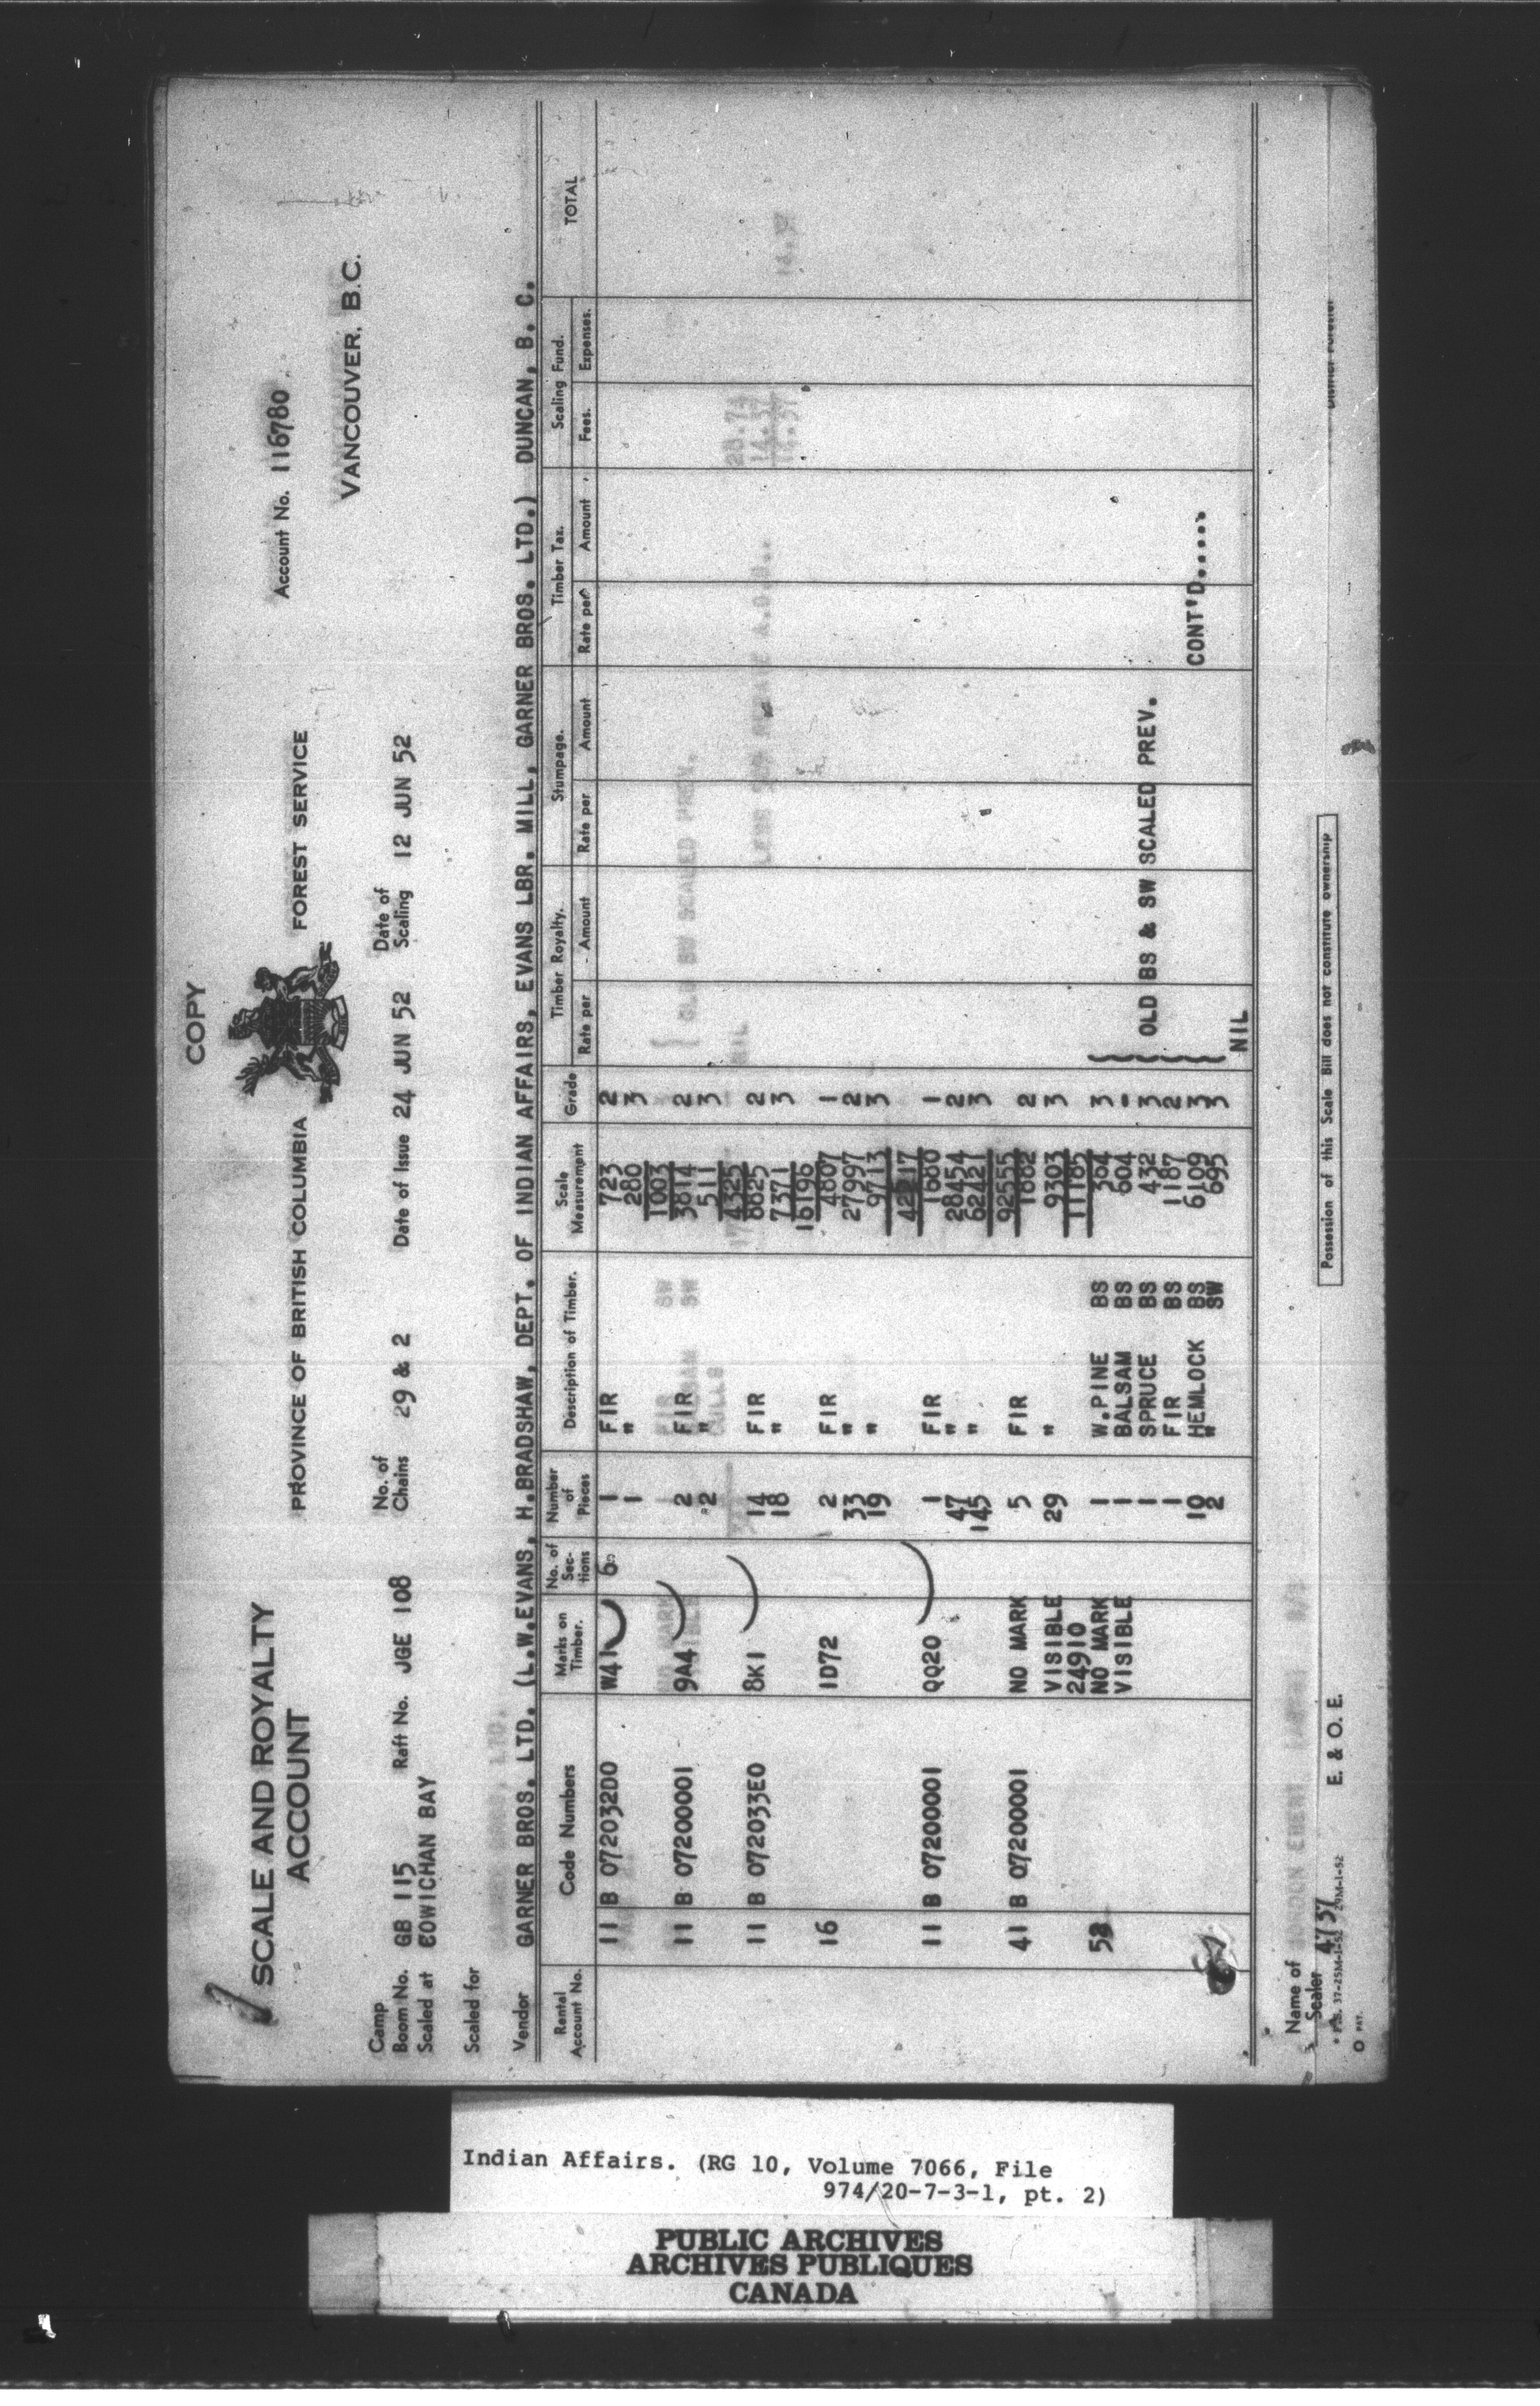 COPY
SCALE AND ROYALTY
ACCOUNT
PROVINCE OF BRITISH COLUMBIA FOREST SERVICE
Account No. 116780
VANCOUVER, B.C.
Camp
Boom No. GB 115 Raft No. JGE 108 No. of Chains 29 & 2 Date of Issue 24 JUN 52 Date of Scaling 12 JUN 52
Scaled at COWICHAN BAY
Scaled for
Vendor GARNER BROS. LTD. (L.W.EVANS, H.BRADSHAW, DEPT. OF INDIAN AFFAIRS, EVANS LBR. MILL, GARNER BROS. LTD.) DUNCAN, B. C.
Rental Account No. Code Numbers Marks on Timber. No. of Sections Number of Pieces Description of Timber. Scale Measurement Grade Timber Royalty. Stumpage. Timber Tax. Scaling Fund. TOTAL
Rate per Amount Rate per Amount Rate per Amount Fees. Expenses.
11 B 072032D0 W41 6 1 FIR 723 2
1 " 280 3
1003
11 B 07200001 9A4 2 FIR 3814 2
2 " 511 3
4325
11 B 072033E0 8K1 14 FIR 8825 2
18 " 7371 3
16196
16 1D72 2 FIR 4807 1
33 " 27997 2
19 " 9713 3
42217
11 B 07200001 QQ20 1 FIR 1680 1
47 " 28454 2
145 " 62421 3
92555
41 B 07200001 NO MARK 5 FIR 1882 2
VISIBLE 29 " 9303 3
24910 11185
NO MARK 1 W.PINE BS 364 3
VISIBLE 1 BALSAM BS 604 -
1 SPRUCE BS 432 3 OLD BS & SW SCALED PREV.
1 FIR BS 1187 2
10 HEMLOCK BS 6109 3 CONT'D.....
2 " SW 695 3
NIL
Name of
Scaler 4757
Possession of this Scale Bill does not constitute ownership
District Forester
E. & O. E.
PAT.
Indian Affairs. (RG 10, Volume 7066, File
974/20-7-3-1, pt. 2)
PUBLIC ARCHIVES
ARCHIVES PUBLIQUES
CANADA